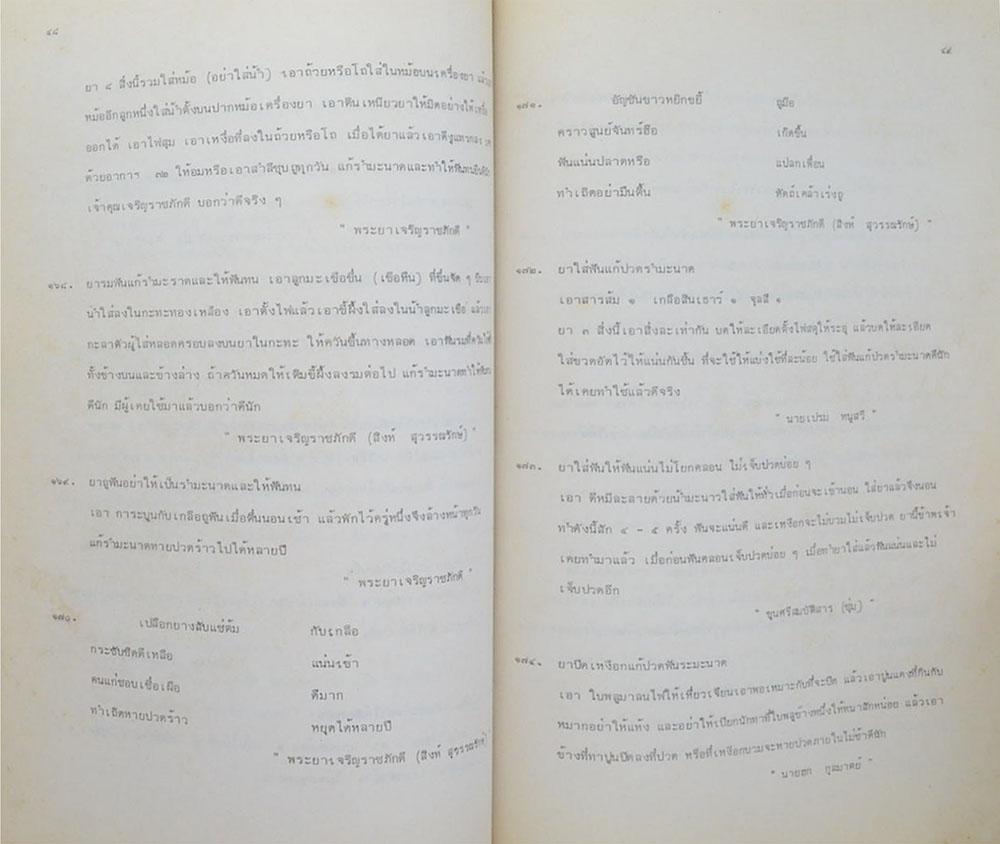 ๔๘
ยา ๘ สิ่งนี้รวมใส่หม้อ (อย่าใส่น้ำ) เอาถ้วยหรือโถใส่ในหม้อบนเครื่องยา แล้วเอา
หม้ออีกลูกหนึ่งใส่น้ำตั้งบนปากหม้อเครื่องยา เอาดินเหนียวยาให้มิดอย่าให้เหงื่อ
ออกได้ เอาไฟสุม เอาเหงื่อที่ลงในถ้วยหรือโถ เมื่อได้ยาแล้วเอาดีงูแทรก
ด้วยอาการ ๗๒ ให้อมหรือเอาสำลีชุบถูทุกวัน แก้รำมะนาดและทำให้ฟันทน
เจ้าคุณเจริญราชภักดี บอกว่าดีจริง ๆ
" พระยาเจริญราชภักดี "
๑๖๘. ยารมฟันแก้รำมะราดและให้ฟันทน เอาลูกมะเขือขื่น (เขือหืน) ที่ขื่นจัด ๆ
น้ำใส่ลงในกะทะทองเหลือง เอาตั้งไฟแล้วเอาขี้ผึ้งใส่ลงในน้ำลูกมะเขือ แล้วเอา
กะลาตัวผู้ใส่หลอดครอบลงบนยาในกะทะ ให้ควันขึ้นทางหลอด เอาฟันรมที่ควันให้
ทั้งข้างบนและข้างล่าง ถ้าควันหมดให้เติมขี้ผึ้งลงรมต่อไป แก้รำมะนาดทำให้ฟันทน
ดีนัก มีผู้เคยใช้มาแล้วบอกว่าดีนัก
" พระยาเจริญราชภักดี (สิงห์ สุวรรณรักษ์) "
๑๖๙. ยาถูฟันอย่าให้เป็นรำมะนาดและให้ฟันทน
เอา การะบูนกับเกลือถูฟันเมื่อตื่นนอนเช้า แล้วพักไว้ครู่หนึ่งจึงล้างหน้าทุกวัน
แก้รำมะนาดหายปวดร้าวไปได้หลายปี
" พระยาเจริญราชภักดี "
๑๗๐. เปลือกยางสับแช่ต้ม กับเกลือ
กระชับชิดดีเหลือ แน่นเข้า
คนแก่ชอบเชื่อเผือ ดีมาก
ทำเถิดหายปวดร้าว หยุดได้หลายปี
" พระยาเจริญราชภักดี (สิงห์ สุวรรณรักษ์) "
๔๙
๑๗๑. อัญชันขาวหยิกขยี้ ถูมือ
คราวสูนย์จันทร์ฮือ เกิดขึ้น
ฟันแน่นปลาดหรือ แปลกเพื่อน
ทำเถิดอย่ามึนตื้น หัตถ์เคล้าเร่งถู
" พระยาเจริญราชภักดี (สิงห์ สุวรรณรักษ์) "
๑๗๒. ยาใส่ฟันแก้ปวดรำมะนาด
เอาสารส้ม ๑ เกลือสินเธาว์ ๑ จุลสี ๑
ยา ๓ สิ่งนี้เอาสิ่งละเท่ากัน บดให้ละเอียดตั้งไฟสตุให้ระอุ แล้วบดให้ละเอียด
ใส่ขวดอัดไว้ให้แน่นกันชื้น ที่จะใช้ให้แบ่งใช้ทีละน้อย ใช้ใส่ฟันแก้ปวดรำมะนาดดีนัก
ได้เคยทำใช้แล้วดีจริง
" นายเปรม หนูสวี "
๑๗๓. ยาใส่ฟันให้ฟันแน่นไม่โยกคลอน ไม่เจ็บปวดบ่อย ๆ
เอา ดีหมีละลายด้วยน้ำมะนาวใส่ฟันให้ทั่วเมื่อก่อนจะเข้านอน ใส่ยาแล้วจึงนอน
ทำดังนี้สัก ๔ - ๕ ครั้ง ฟันจะแน่นดี และเหงือกจะไม่บวมไม่เจ็บปวด ยานี้ข้าพเจ้า
เคยทำมาแล้ว เมื่อก่อนฟันคลอนเจ็บปวดบ่อย ๆ เมื่อทำยาใส่แล้วฟันแน่นและไม่
เจ็บปวดอีก
" ขุนศรีสมบัติสาร (ชุ่ม) "
๑๗๔. ยาปิดเหงือกแก้ปวดฟันระมะนาด
เอา ใบพลูมาลนไฟให้เหี่ยวเจียนเอาพอเหมาะกับที่จะปิด แล้วเอาปูนแดงที่กินกับ
หมากอย่าให้แห้ง และอย่าให้เปียกนักทาที่ใบพลูข้างหนึ่งให้หนาสักหน่อย แล้วเอา
ข้างที่ทาปูนปิดลงที่ปวด หรือที่เหงือกบวมจะหายปวดภายในไม่ช้าดีนัก
" นายฮก กูลมาตย์ "